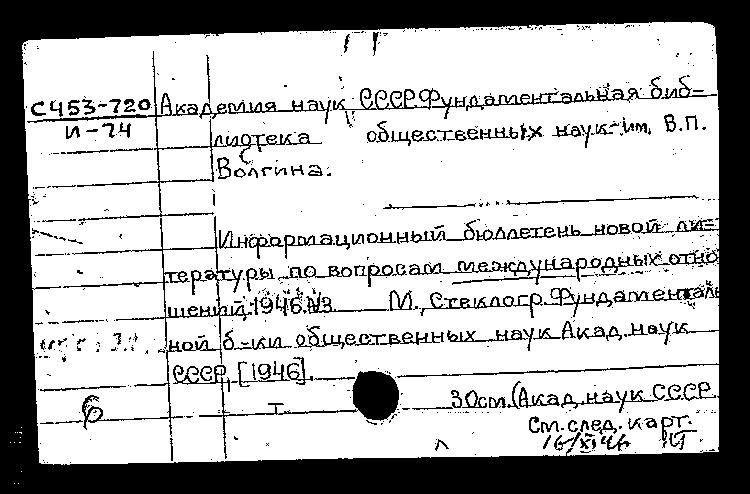 С453-720 Академия наук СССР Фундаментальная биб=
И-74
лиотека общественных наук им. В.П.
Волгина.
Информационный бюллетень новой ли=
тературы по вопросам международных отно
шений. 1946. №3 М., Стеклогр. Фундаменталь
ной б=ки общественных наук Акад. наук
СССР, [1946].
30см. (Акад. наук СССР
См. след. карт.
б I
16/XI 46